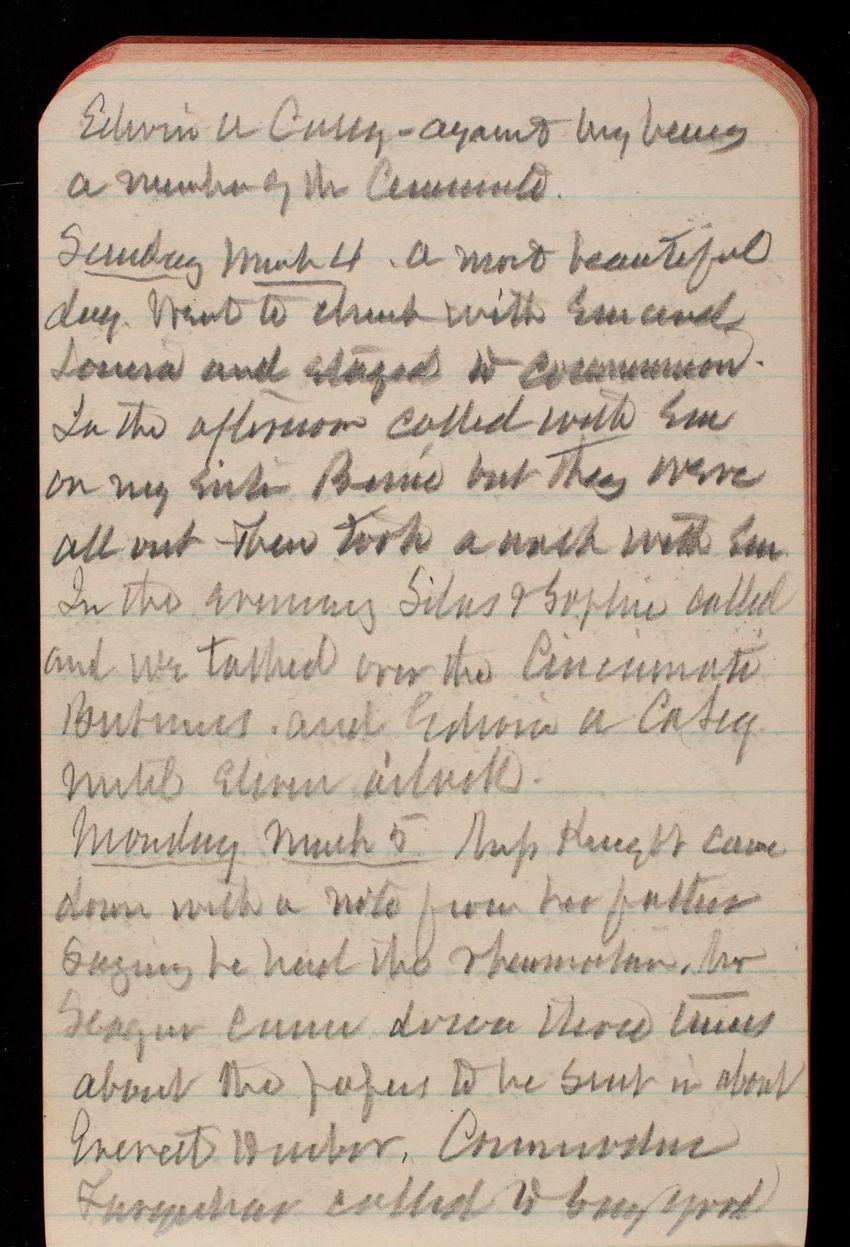 Edwin A Casey - against my being
a member of the Cincinnati.
Sunday March 4. A most beautiful
day. Went to church with Em and
Louisa and stayed to communion.
In the afternoon called with Em
on my but they were
all out - Then took a walk with Em
In the evening Silas & Sophie called
and we talked over the Cincinnati
Business. and Edwin A Casey
until eleven o'clock.
Monday March 5 Miss Knight came
down with a note from her father
saying he had the rheumatism. Mr
came down three times
about the papers to be sent in about
Everett Harbor. Commodore
Farquhar called to say good